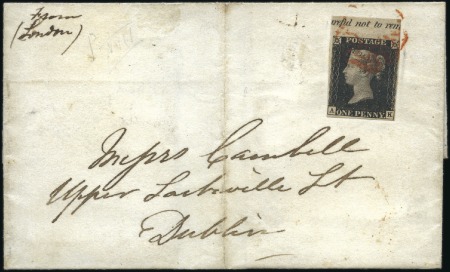 From
(London)
eful not to rem
POSTAGE
A K
ONE PENNY
Messrs Cambell
Upper Sackville St
Dublin